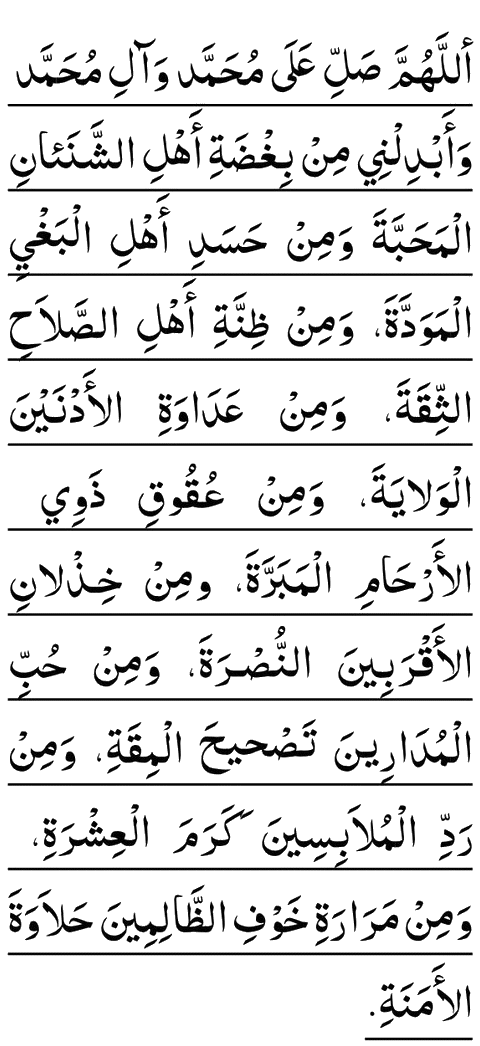 أَللَّهُمَّ صَلِّ عَلَى مُحَمَّد وَآلِ مُحَمَّد
وَأَبْدِلْنِي مِنْ بِغْضَةِ أَهْلِ الشَّنَئانِ
الْمَحَبَّةَ وَمِنْ حَسَدِ أَهْلِ الْبَغْيِ
الْمَوَدَّةَ، وَمِنْ ظِنَّةِ أَهْلِ الصَّلاَحِ
الثِّقَةَ، وَمِنْ عَدَاوَةِ الأَدْنَيْنَ
الْوَلايَةَ، وَمِنْ عُقُوقِ ذَوِي
الأَرْحَامِ الْمَبَرَّةَ، ومِنْ خِذْلانِ
الأَقْرَبِينَ النُّصْرَةَ، وَمِنْ حُبِّ
الْمُدَارِينَ تَصْحيحَ الْمِقَةِ، وَمِنْ
رَدِّ الْمُلاَبِسِينَ كَرَمَ الْعِشْرَةِ،
وَمِنْ مَرَارَةِ خَوْفِ الظَّالِمِينَ حَلاَوَةَ
الأَمَنَةِ.